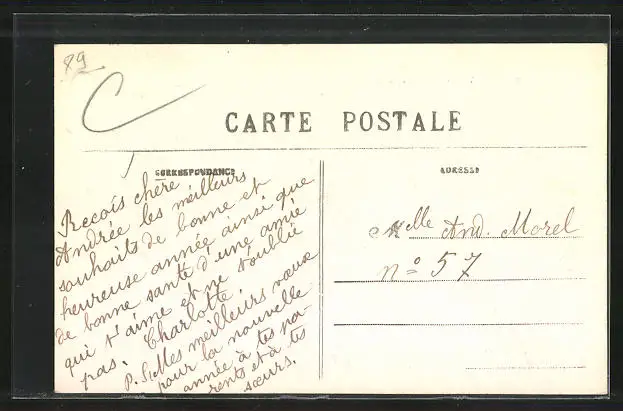 89
CARTE POSTALE
CORRESPONDANCE
ADRESSE
Recois chère
Andrée les meilleurs
souhaits de bonne et
heureuse année ainsi que
de bonne santé d'une amie
qui t'aime et ne t'oublie
pas. Charlotte.
P.S. Mes meilleurs vœux
pour la nouvelle
année à tes pa-
rents et à tes
sœurs.
Melle And. Morel
n° 57